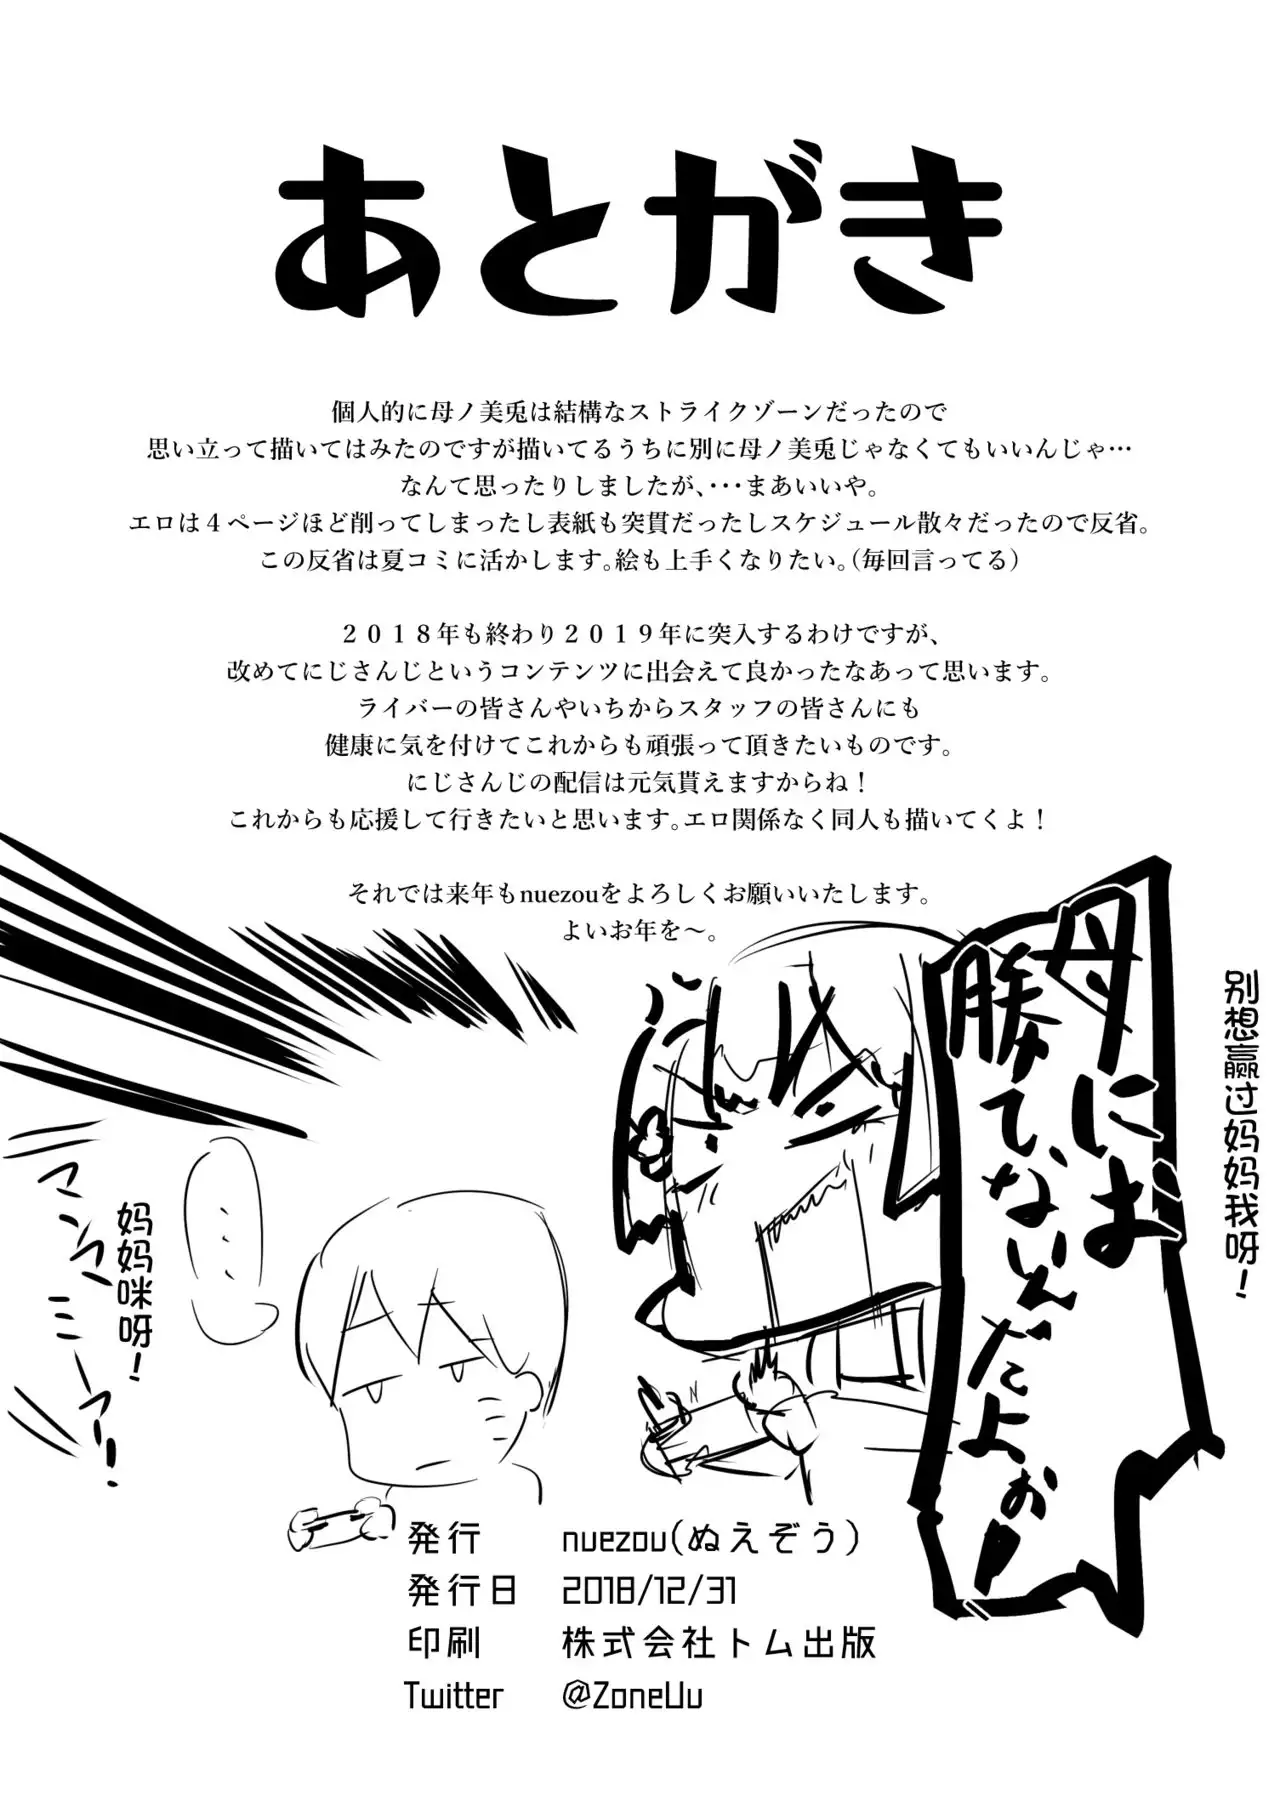 あとがき
個人的に母ノ美兎は結構なストライクゾーンだったので
思い立って描いてはみたのですが描いてるうちに別に母ノ美兎じゃなくてもいいんじゃ…
なんて思ったりしましたが、・・・まあいいや。
エロは４ページほど削ってしまったし表紙も突貫だったしスケジュール散々だったので反省。
この反省は夏コミに活かします。絵も上手くなりたい。（毎回言ってる）
２０１８年も終わり２０１９年に突入するわけですが、
改めてにじさんじというコンテンツに出会えて良かったなあって思います。
ライバーの皆さんやいちからスタッフの皆さんにも
健康に気を付けてこれからも頑張って頂きたいものです。
にじさんじの配信は元気貰えますからね！
これからも応援して行きたいと思います。エロ関係なく同人も描いてくよ！
それでは来年もnuezouをよろしくお願いいたします。
よいお年を～。
别想赢过妈妈我呀！
母には
勝てないんだよぉ！
・・・
妈妈咪呀！
マンマ
ミーアー！
発行 nuezou(ぬえぞう)
発行日 2018/12/31
印刷 株式会社トム出版
Twitter @ZoneUu